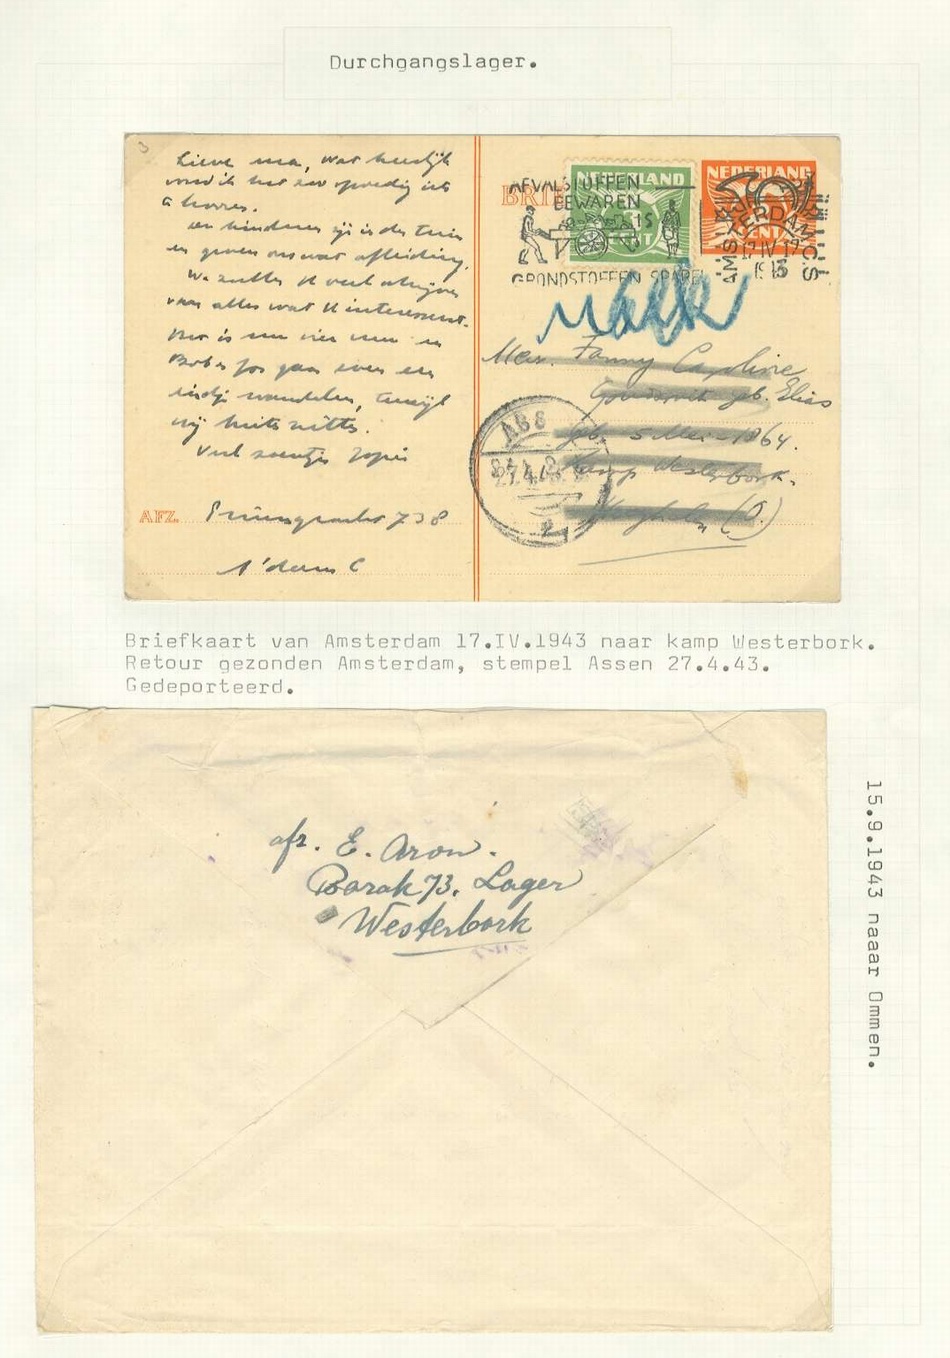 Durchgangslager.
3
Lieve ma, wat heerlijk
vond ik het zoo spoedig iets
te hooren.
kinderen zijn in den tuin
en geven ons wat afleiding.
We zullen U veel schrijven
van alles wat U interesseert.
Het is nu vier uur en
Bob en Jos gaan even een
eindje wandelen, terwijl
wij buiten zitten.
Veel zoentjes
AFZ. Prinsengracht 738
A'dam C
BRIE
NEDERLAND
NEDERLAND
AFVALSTOFFEN
BEWAREN
IS
GRONDSTOFFEN SPAREN
AMSTERDAM C.S
17 IV 17
1943
CENT
Mevr. Fanny Caroline
Goudsmit geb. Elias
geb. 5 Mei - 1864.
Kamp Westerbork.
Hooghalen (D.)
ASS
27.4.43
2
Briefkaart van Amsterdam 17.IV.1943 naar kamp Westerbork.
Retour gezonden Amsterdam, stempel Assen 27.4.43.
Gedeporteerd.
afz. E. Aron.
Barak 73. Lager
Westerbork
15.9.1943 naaar Ommen.